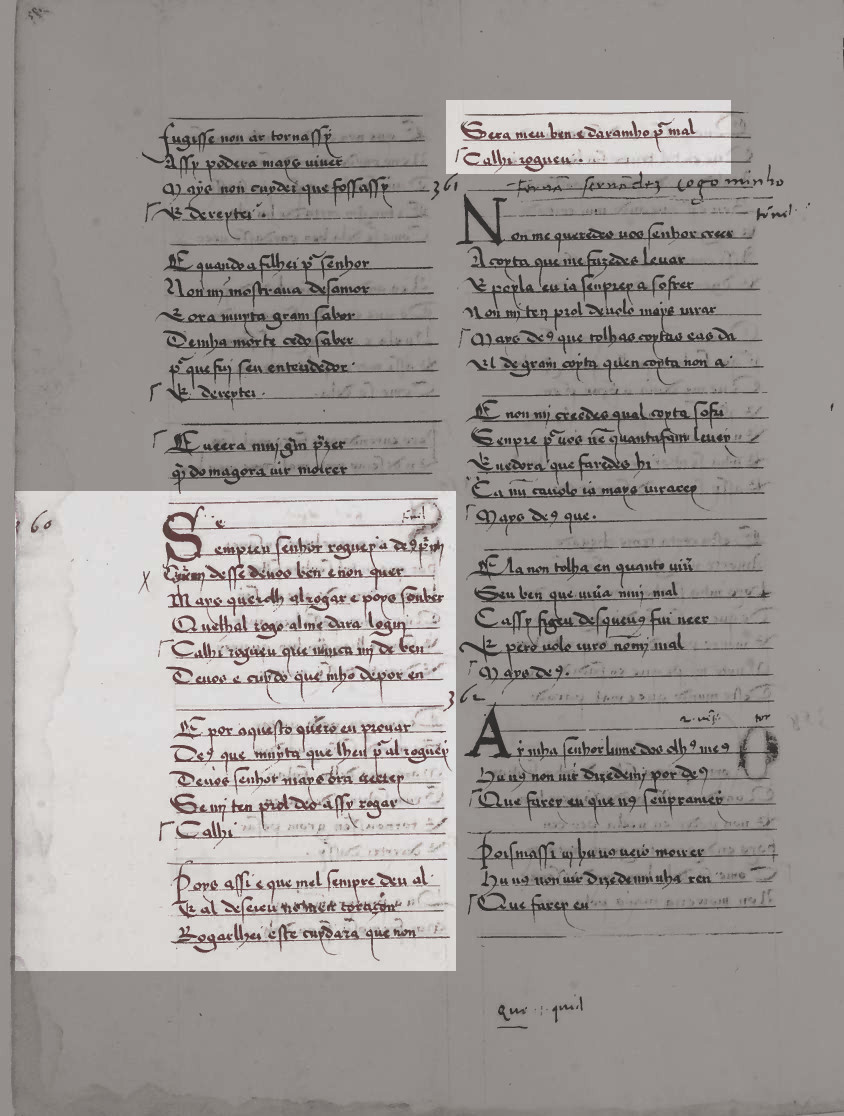 fugisse non ar tornassy
Assy podera mays viver
Mays non cuydei que fossassy
E dereytei.
E quando a filhei pr senhor
Non mj mostraua desamor
E ora muyta gram sabor
De mha morte cedo saber
pr que fuj seu entendedor.
E dereytei.
E veera mui gram przer
qndo magora vir morrer
360
Sempreu senhor roguey a de9
desse deuos ben e non quer
Mays quer olh al rogar e poys souber
Que lhal rogo al me dara logu
Ca lhi rogueu que nunca mj de ben
Deuos e cuydo que mho de por en
E por aquesto quero eu prouar
De9 que muyta que lheu pr al roguey
Deuos senhor mays ora
Se mj ten prol deo assy rogar
Ca lhi
Poys assi e que mel sempre deu al
E al deseieu no meu coraçon
Rogarlhei este e cuydara que non
Sera meu ben e daramho pr mal
Ca lhi rogueu.
361
fernandez cogominho
Non me queredes uos senhor creer
A coyta que me fazedes leuar
E poyla eu ia senprey a sofrer
Non mj ten prol deuolo mays iurar
Mays de9 que tolhas coytas e as da
El de gram coyta quen coyta non a
E non mj creedes qual coyta sofri
Senpre pr uos nen quant afam leuey
E uedora que faredes hi
Ca nun cauolo ia mays iurarey
Mays de9 que.
E la non tolha en quanto uiu
Seu ben que uiua muj mal
E assy figeu des que u9 fui ueer
E pero uolo iuro nom mj ual
Mays de9.
362
Ay mha senhor lume dos olh9 me9
Hu u9 non uir dizedemj por de9
Que farey eu que u9 senpr amey
Pois massi uj hu uo ueio morrer
Hu u9 non uir dizedemmi nha ren
Que farey eu